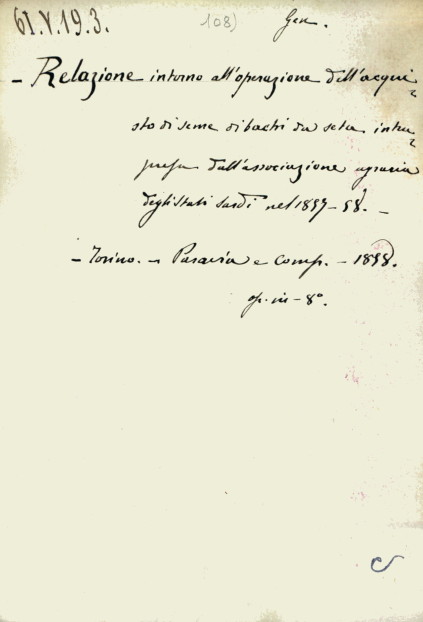 61.V.19.3. 108) Gen.
- Relazione intorno all'operazione dell'acqui=
sto di seme di bachi da seta intra=
presa dall'associazione agraria
degli stati sardi nel 1857-58. -
- Torino. - Paravia e comp. - 1858.
op. in - 8°.